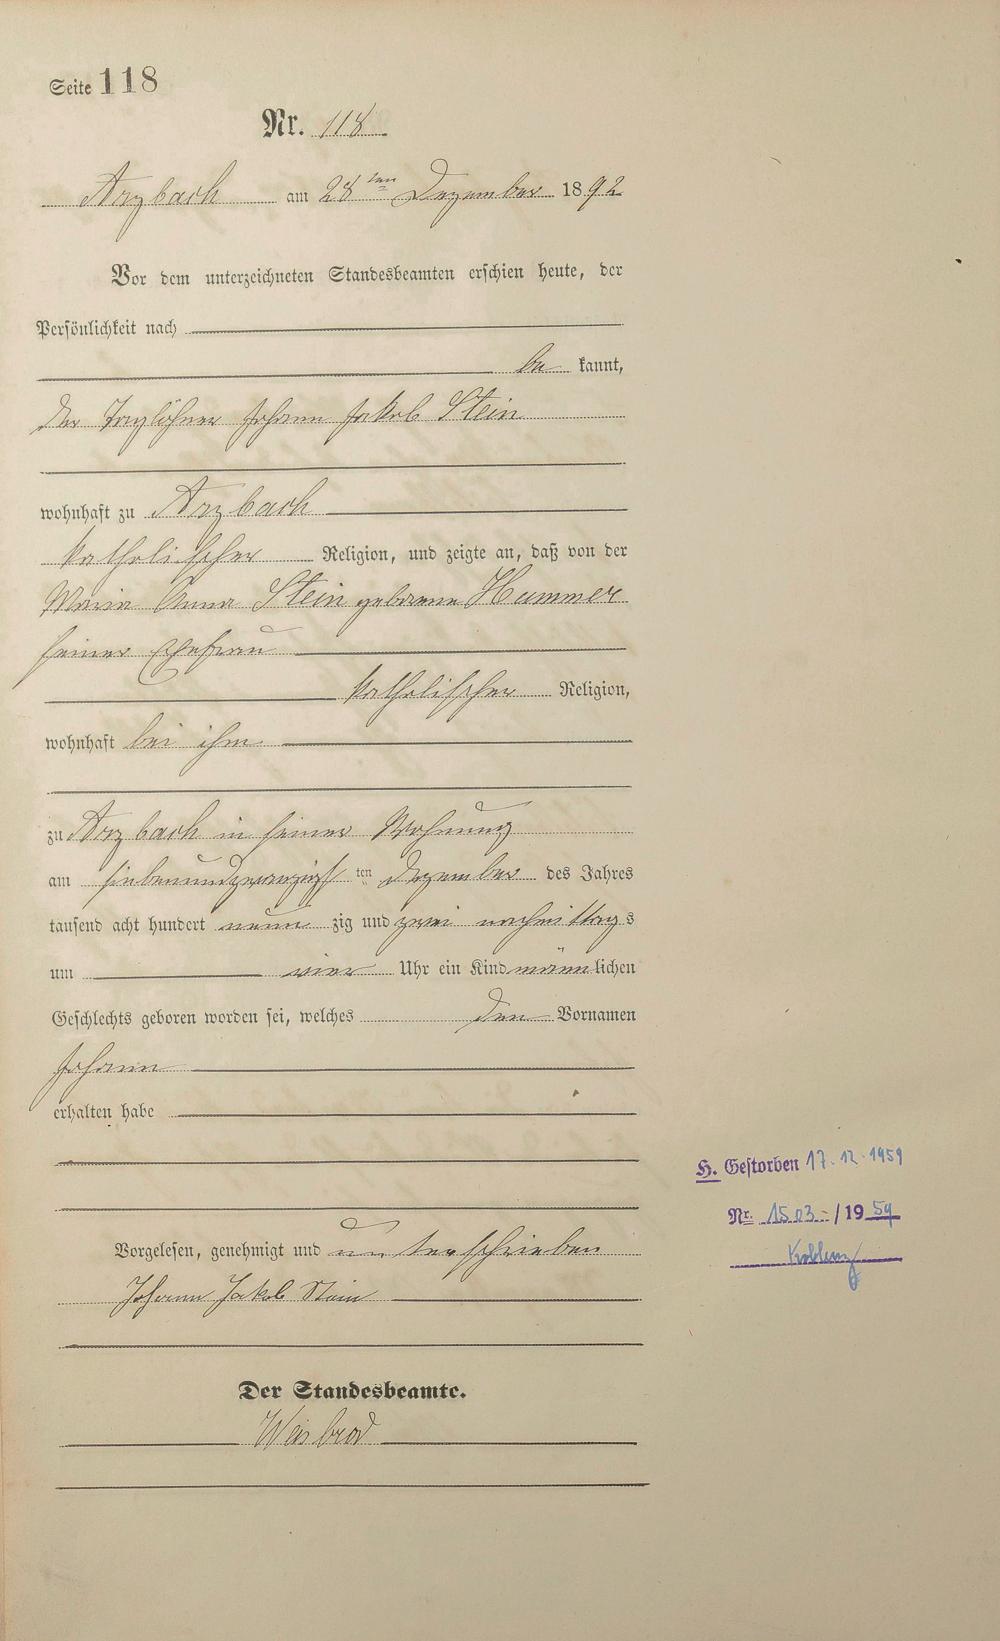 Seite 118
Nr. 118
Arzbach am 28ten Dezember 1892
Vor dem unterzeichneten Standesbeamten erschien heute, der
Persönlichkeit nach
be kannt,
der Taglöhner Johann Jakob Stein
wohnhaft zu Arzbach
katholischer Religion, und zeigte an, daß von der
Maria Anna Stein geborene Hammer
seiner Ehefrau
katholischer Religion,
wohnhaft bei ihm
zu Arzbach in seiner Wohnung
am siebenundzwanzigsten Dezember des Jahres
tausend acht hundert neun zig und zwei nachmittags
um vier Uhr ein Kind männlichen
Geschlechts geboren worden sei, welches den Vornamen
Johann
erhalten habe
H. Gestorben 17.12.1959
Nr. 1503 /1959
Koblenz
Vorgelesen, genehmigt und unterschrieben
Johann Jakob Stein
Der Standesbeamte.
Weisbrod